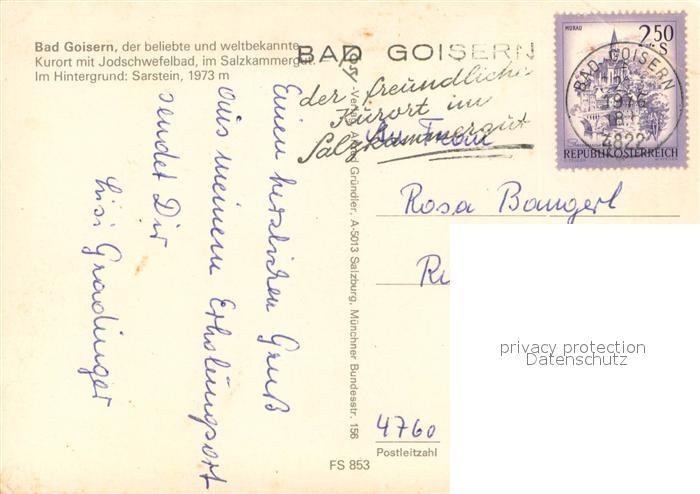 Bad Goisern, der beliebte und weltbekannte
Kurort mit Jodschwefelbad, im Salzkammergut.
Im Hintergrund: Sarstein, 1973 m
BAD GOISERN
der freundliche
Kurort im
Salzkammergut
MURAU
2.50
S
BAD GOISERN
1976
4822
REPUBLIK ÖSTERREICH
Einen herzlichen Gruß
aus meinem Erholungsort
sendet Dir
Lisi Gradinger
-Verlag Gründler, A-5013 Salzburg, Münchner Bundesstr. 156
An Frau
Rosa Bangerl
4760
Postleitzahl
FS 853
privacy protection
Datenschutz